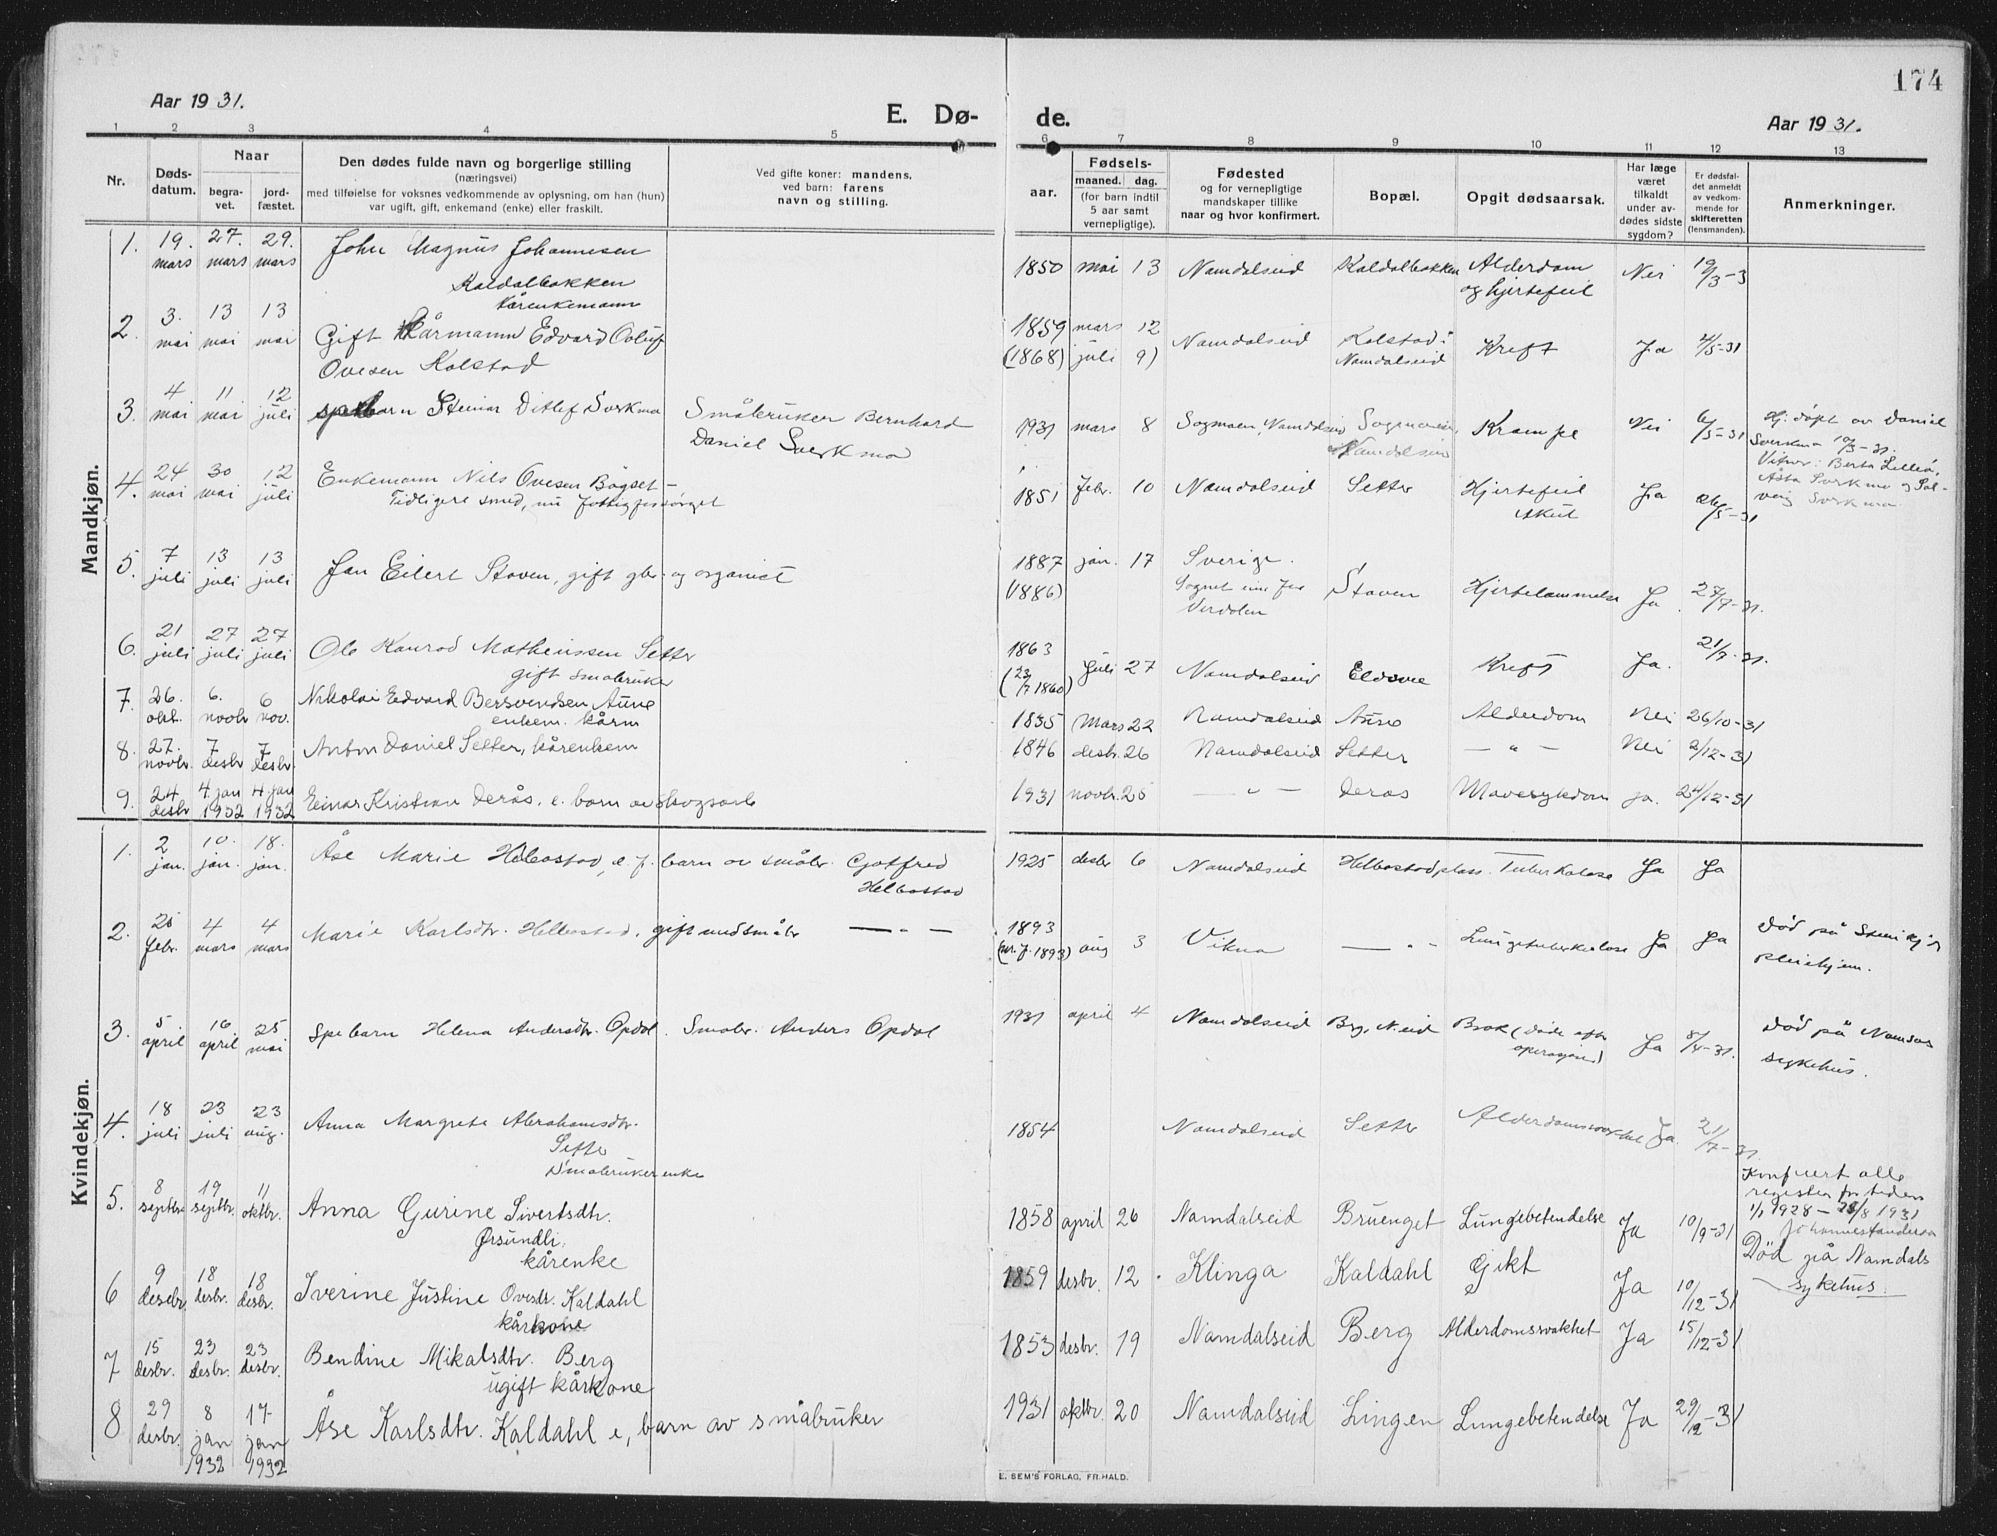 174
Aar 1931.
E. Dø-
de.
Aar 1931.
1 2 3 4 5 6 7 8 9 10 11 12 13
Nr.
Døds-
datum.
Naar
begra-
vet.
jord-
fæstet.
Den dødes fulde navn og borgerlige stilling
(næringsvei)
med tilføielse for voksnes vedkommende av oplysning, om han (hun)
var ugift, gift, enkemand (enke) eller fraskilt.
Ved gifte koner: mandens,
ved barn: farens
navn og stilling.
aar.
Fødsels-
maaned. dag.
(for barn indtil
5 aar samt
vernepligtige).
Fødested
og for vernepligtige
mandskaper tillike
naar og hvor konfirmert.
Bopæl.
Opgit dødsaarsak.
Har læge
været
tilkaldt
under av-
dødes sidste
sygdom?
Er dødsfal-
det anmeldt
av vedkom-
mende for
skifteretten
(lensmanden).
Anmerkninger.
Mandkjøn.
1. 19. mars 27. mars 29. mars John Magnus Johannesen
Kaldalbakken
kårenkemann
1850 mai 13 Namdalseid Kaldalbakken Alderdom
og hjertefeil Nei 19/3-3
2. 3. mai 13 mai 13 mai Gift Kårmann Edvard Oluf
Ovesen Kolstad
1859 mars 12
(1868) juli 9) Namdalseid Kolstad i
Namdalseid Kreft Ja 4/5-31
3. 4 mai 11 mai 12 juli spebarn Steinar Ditlef Sverkmo Småbruker Bernhard
Daniel Sverkmo
1931 mars 8 Sogmoen, Namdalseid Sogmoen,
Namdalseid Krampe Nei 6/5-31 Hj. døpt av Daniel
Sverkmo 10/3-31.
4. 24 mai 30 mai 12 juli Enkemann Nils Ovesen Bøgset -
Tidligere smed, nu fattigforsørget
1851 febr. 10 Namdalseid Setter Hjertefeil
Akut Ja 26/5-31
5. 7 juli 13 juli 13 juli Jan Eilert Staven, gift gbr. og organist
1887 jan. 17 Sverige.
(1886) Verdalen Staven Hjertelammelse Ja 27/7-31.
6. 21 juli 27 juli 27 juli Ole Konrad Mathenssen Setter
gift småbruker
1863
(23/7 1860) juli 27 Namdalseid Eldvie Kreft Ja. 21/7-31.
7. 26. okt. 6. novbr 6 nov. Nikolai Edvard Bersvendsen Aune
enkem. kårm
1835 Mars 22 Namdalseid Aune Alderdom Nei 26/10-31
8. 27. novbr. 7 desbr 7 desbr. Anton Daniel Setter, kårenkem
1846 desbr. 26 Namdalseid Setter — " — Nei 2/12-31
9. 24 desbr 4 jan 1932 4 jan 1932 Einar Kristian Derås. e. barn av skogsarb
1931 novbr. 25 — " — Derås Mavesykdom ja. 24/12-31
Kvindekjøn.
1. 2 jan. 10. jan. 18. jan. Åse Marie Helbostad, e. f. barn av småbr. Gotfred
Helbostad
1925 desbr 6 Namdalseid Helbostadplass. Tuberkulose Ja Ja
2. 25 febr. 4 mars 4 mars Marie Karlsdtr. Helbostad, gift med småbr — " —
1893
aug 3 Vikna — " — Lungetuberkulose Ja Ja Død på Steinkjer
pleiehjem.
3. 5 april 16 april 25 mai Spebarn Helena Andersdtr. Opdal. Småbr. Anders Opdal
1931 april 4 Namdalseid Brg. N.eid Brok (døde efter
operasjon) Ja 8/4-31. Død på Namsos
sykehus.
4. 18 juli 23 juli 23 aug. Anna Margrete Abrahamsdtr.
Setter
Småbrukerenke
1854 Namdalseid Setter Alderdomssvakhet Ja. 21/7-31
5. 8 septbr 19 septbr. 11 oktbr. Anna Gurine Sivertsdtr.
Ørsundli.
kårenke
1858 april 26 Namdalseid Bruenget Lungebetendelse Ja 10/9-31
Konferert alle
registra for tiden
1/1 1928 - 28/8 1931
6 9 desebr. 18 desbr. 18 desbr. Iverine Justine Ovesdr. Kaldahl
kårkone
1859 desbr. 12 Klinga Kaldahl Gikt Ja 10/12-31 Død på Namdals
sykehus.
7 15 desbr. 23 desbr. 23 desbr. Bendine Mikalsdtr. Berg
ugift kårkone
1853 desbr. 19 Namdalseid Berg Alderdomssvakhet Ja 15/12-31
8 29 desbr. 8 jan 1932 17 jan 1932 Åse Karlsdtr. Kaldahl e, barn av småbruker
1931 oktbr. 20 Namdalseid Lingen Lungebetendelse Ja 29/12-31
E. SEM'S FORLAG, FR.HALD.